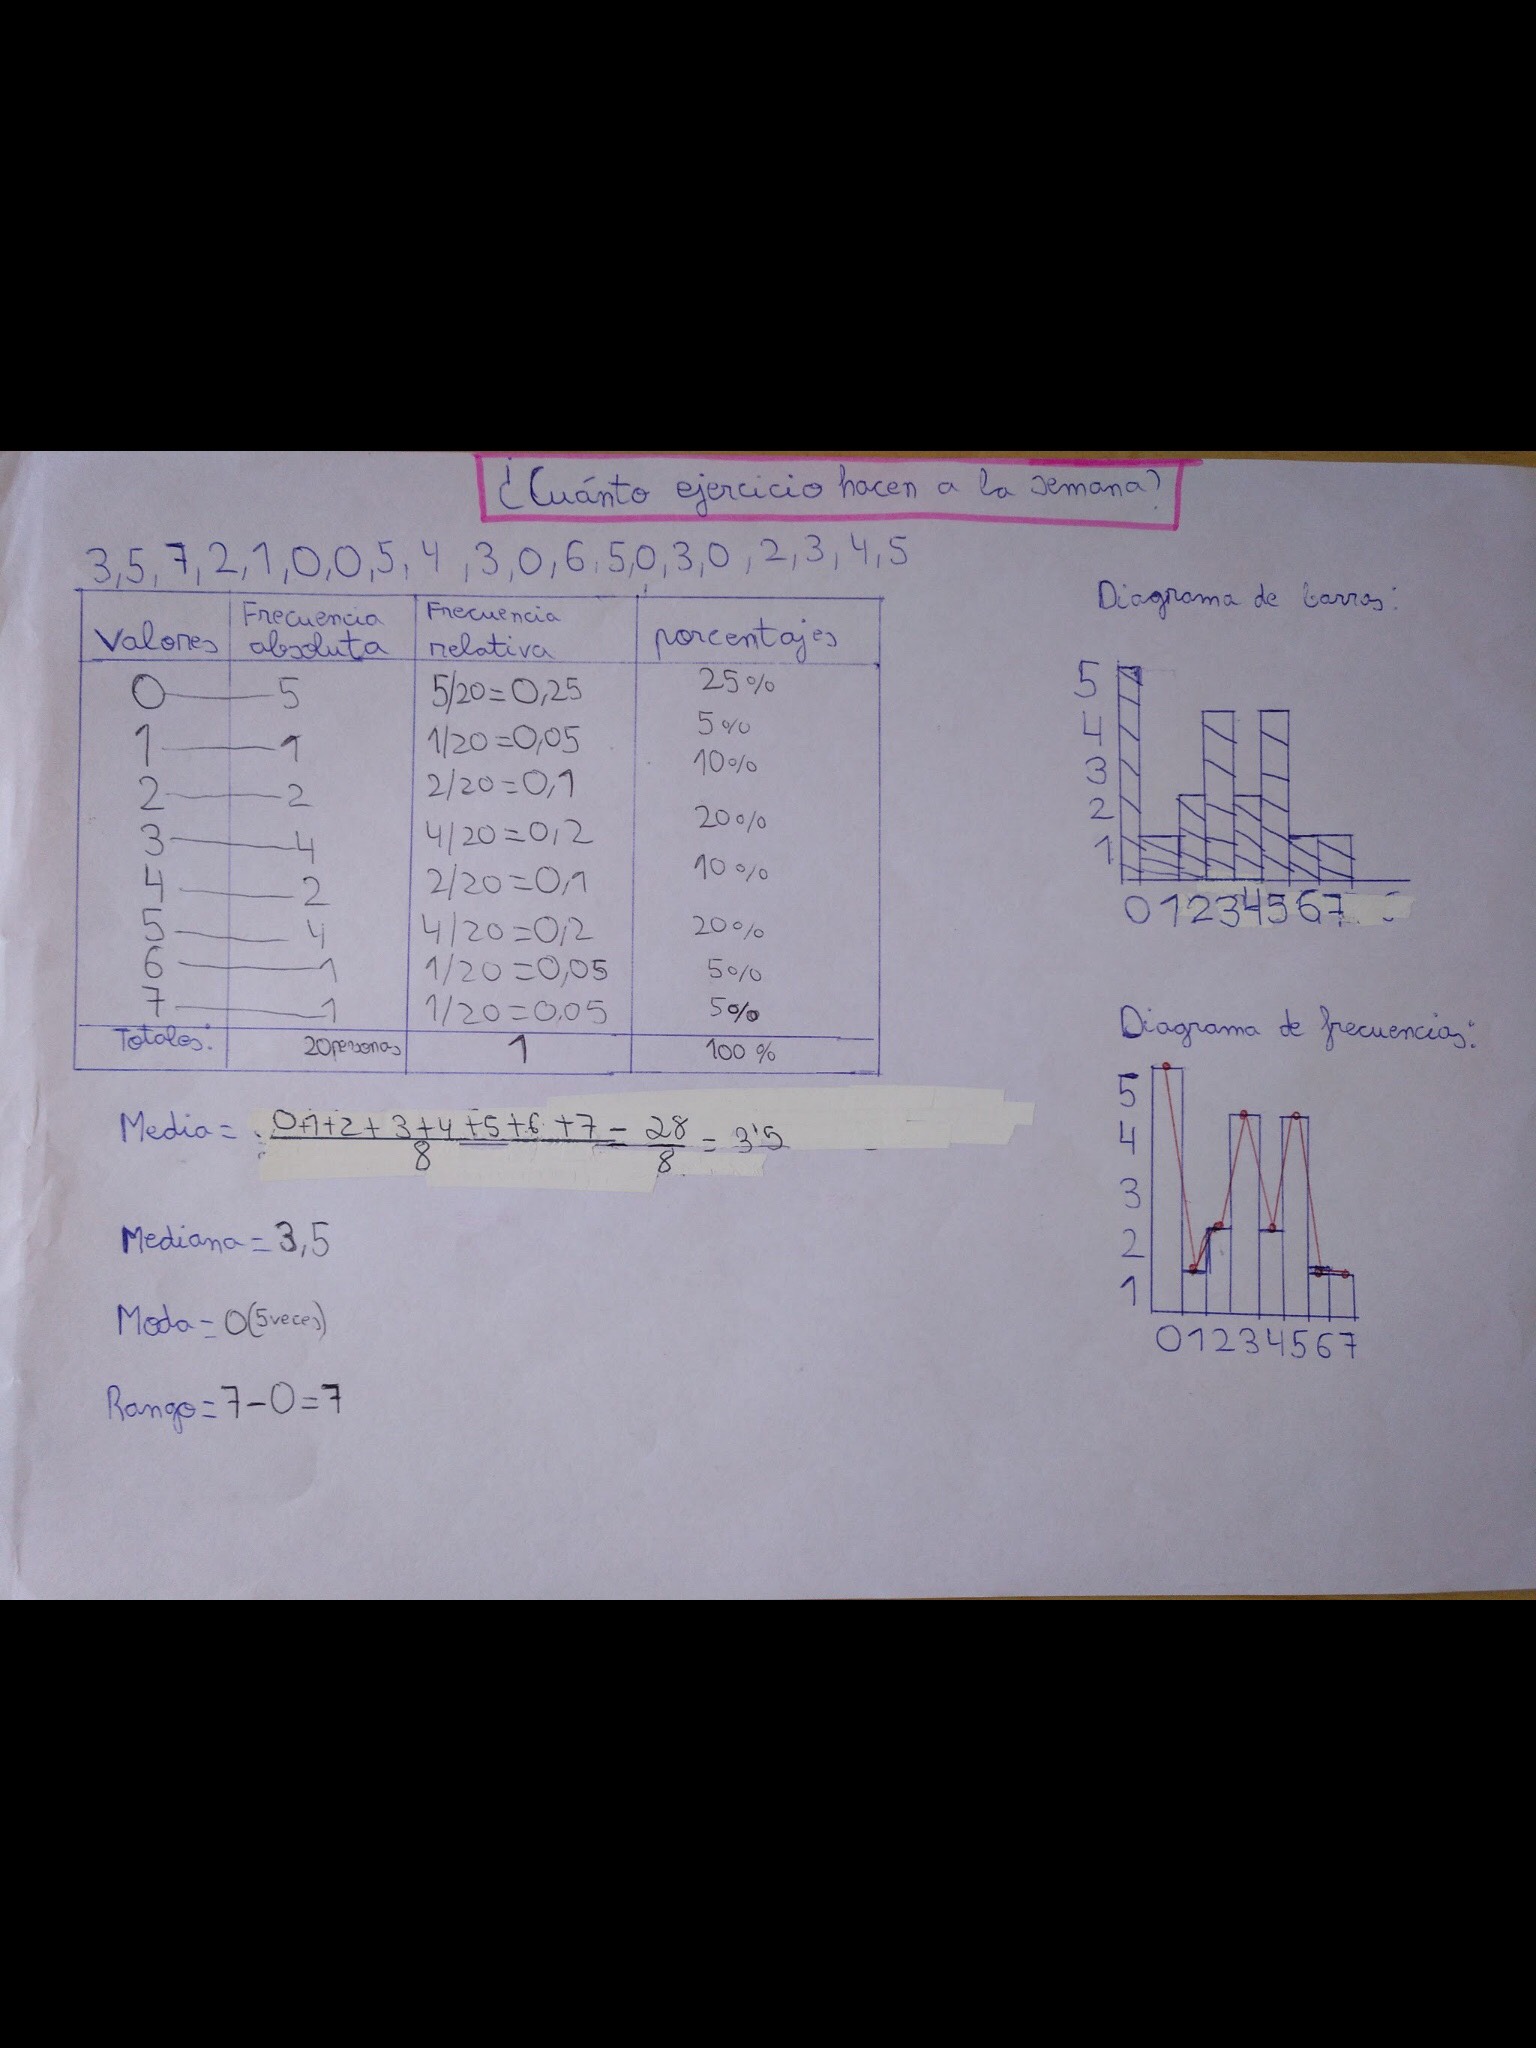 ¿Cuánto ejercicio hacen a la semana?
3,5,7,2,1,0,0,5,4,3,0,6,5,0,3,0,2,3,4,5
Valores Frecuencia absoluta Frecuencia relativa porcentajes
0 5 5/20=0,25 25%
1 1 1/20=0,05 5%
2 2 2/20=0,1 10%
3 4 4/20=0,2 20%
4 2 2/20=0,1 10%
5 4 4/20=0,2 20%
6 1 1/20=0,05 5%
7 1 1/20=0,05 5%
Totales: 20personas 1 100%
Media= 0+1+2+3+4+5+6+7 = 28 = 3'5
8 8
Mediana=3,5
Moda=0(5veces)
Rango=7-0=7
Diagrama de barras:
5
4
3
2
1
0 1 2 3 4 5 6 7
Diagrama de frecuencias:
5
4
3
2
1
0 1 2 3 4 5 6 7